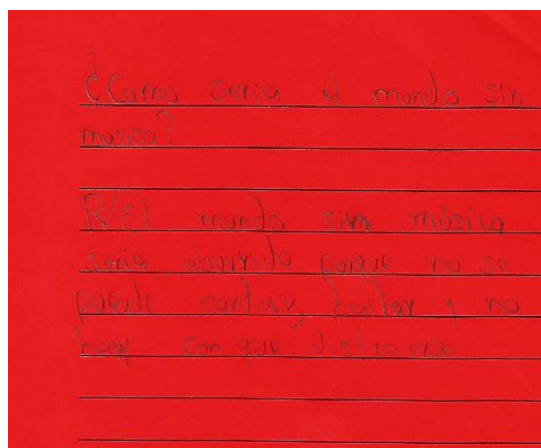 ¿Como seria el mundo sin
musica?
R/El mundo sin música
seria aburrido porque no se
puede cantar, bailar y no
hay con que